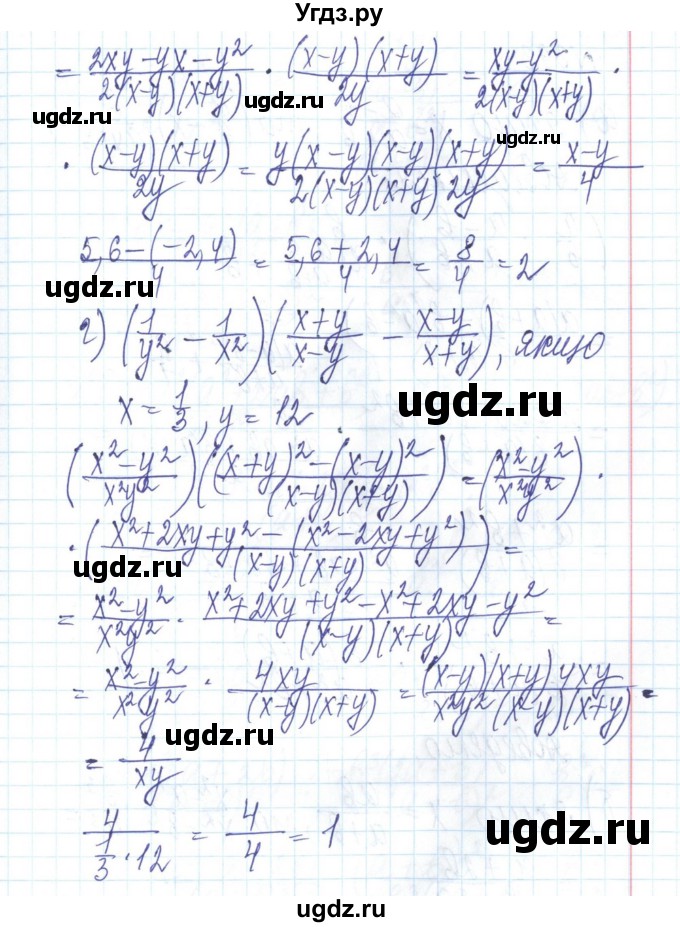 Угдз.ру
= (2xy - yx - y²)/(2(x-y)(x+y)) · ((x-y)(x+y))/(2y) = (xy - y²)/(2(x-y)(x+y)) ·
ugdz.ru ugdz.ru ugdz.ru
· ((x-y)(x+y))/(2y) = (y(x-y)(x-y)(x+y))/(2(x-y)(x+y) 2y) = (x-y)/4
(5,6 - (-2,4))/4 = (5,6 + 2,4)/4 = 8/4 = 2
ugdz.ru
г) (1/y² - 1/x²)((x+y)/(x-y) - (x-y)/(x+y)), якщо
ugdz.ru
x = 1/3, y = 12.
((x² - y²)/(x²y²))(((x+y)² - (x-y)²)/((x-y)(x+y))) = ((x² - y²)/(x²y²)) ·
· ((x² + 2xy + y² - (x² - 2xy + y²))/((x-y)(x+y))) =
ugdz.ru
= (x² - y²)/(x²y²) · (x² + 2xy + y² - x² + 2xy - y²)/((x-y)(x+y)) =
= (x² - y²)/(x²y²) · 4xy/((x-y)(x+y)) = ((x-y)(x+y) 4xy)/(x²y²(x-y)(x+y)) =
ugdz.ru
= 4/(xy)
4/(1/3 · 12) = 4/4 = 1
ugdz.ru
ugdz.ru